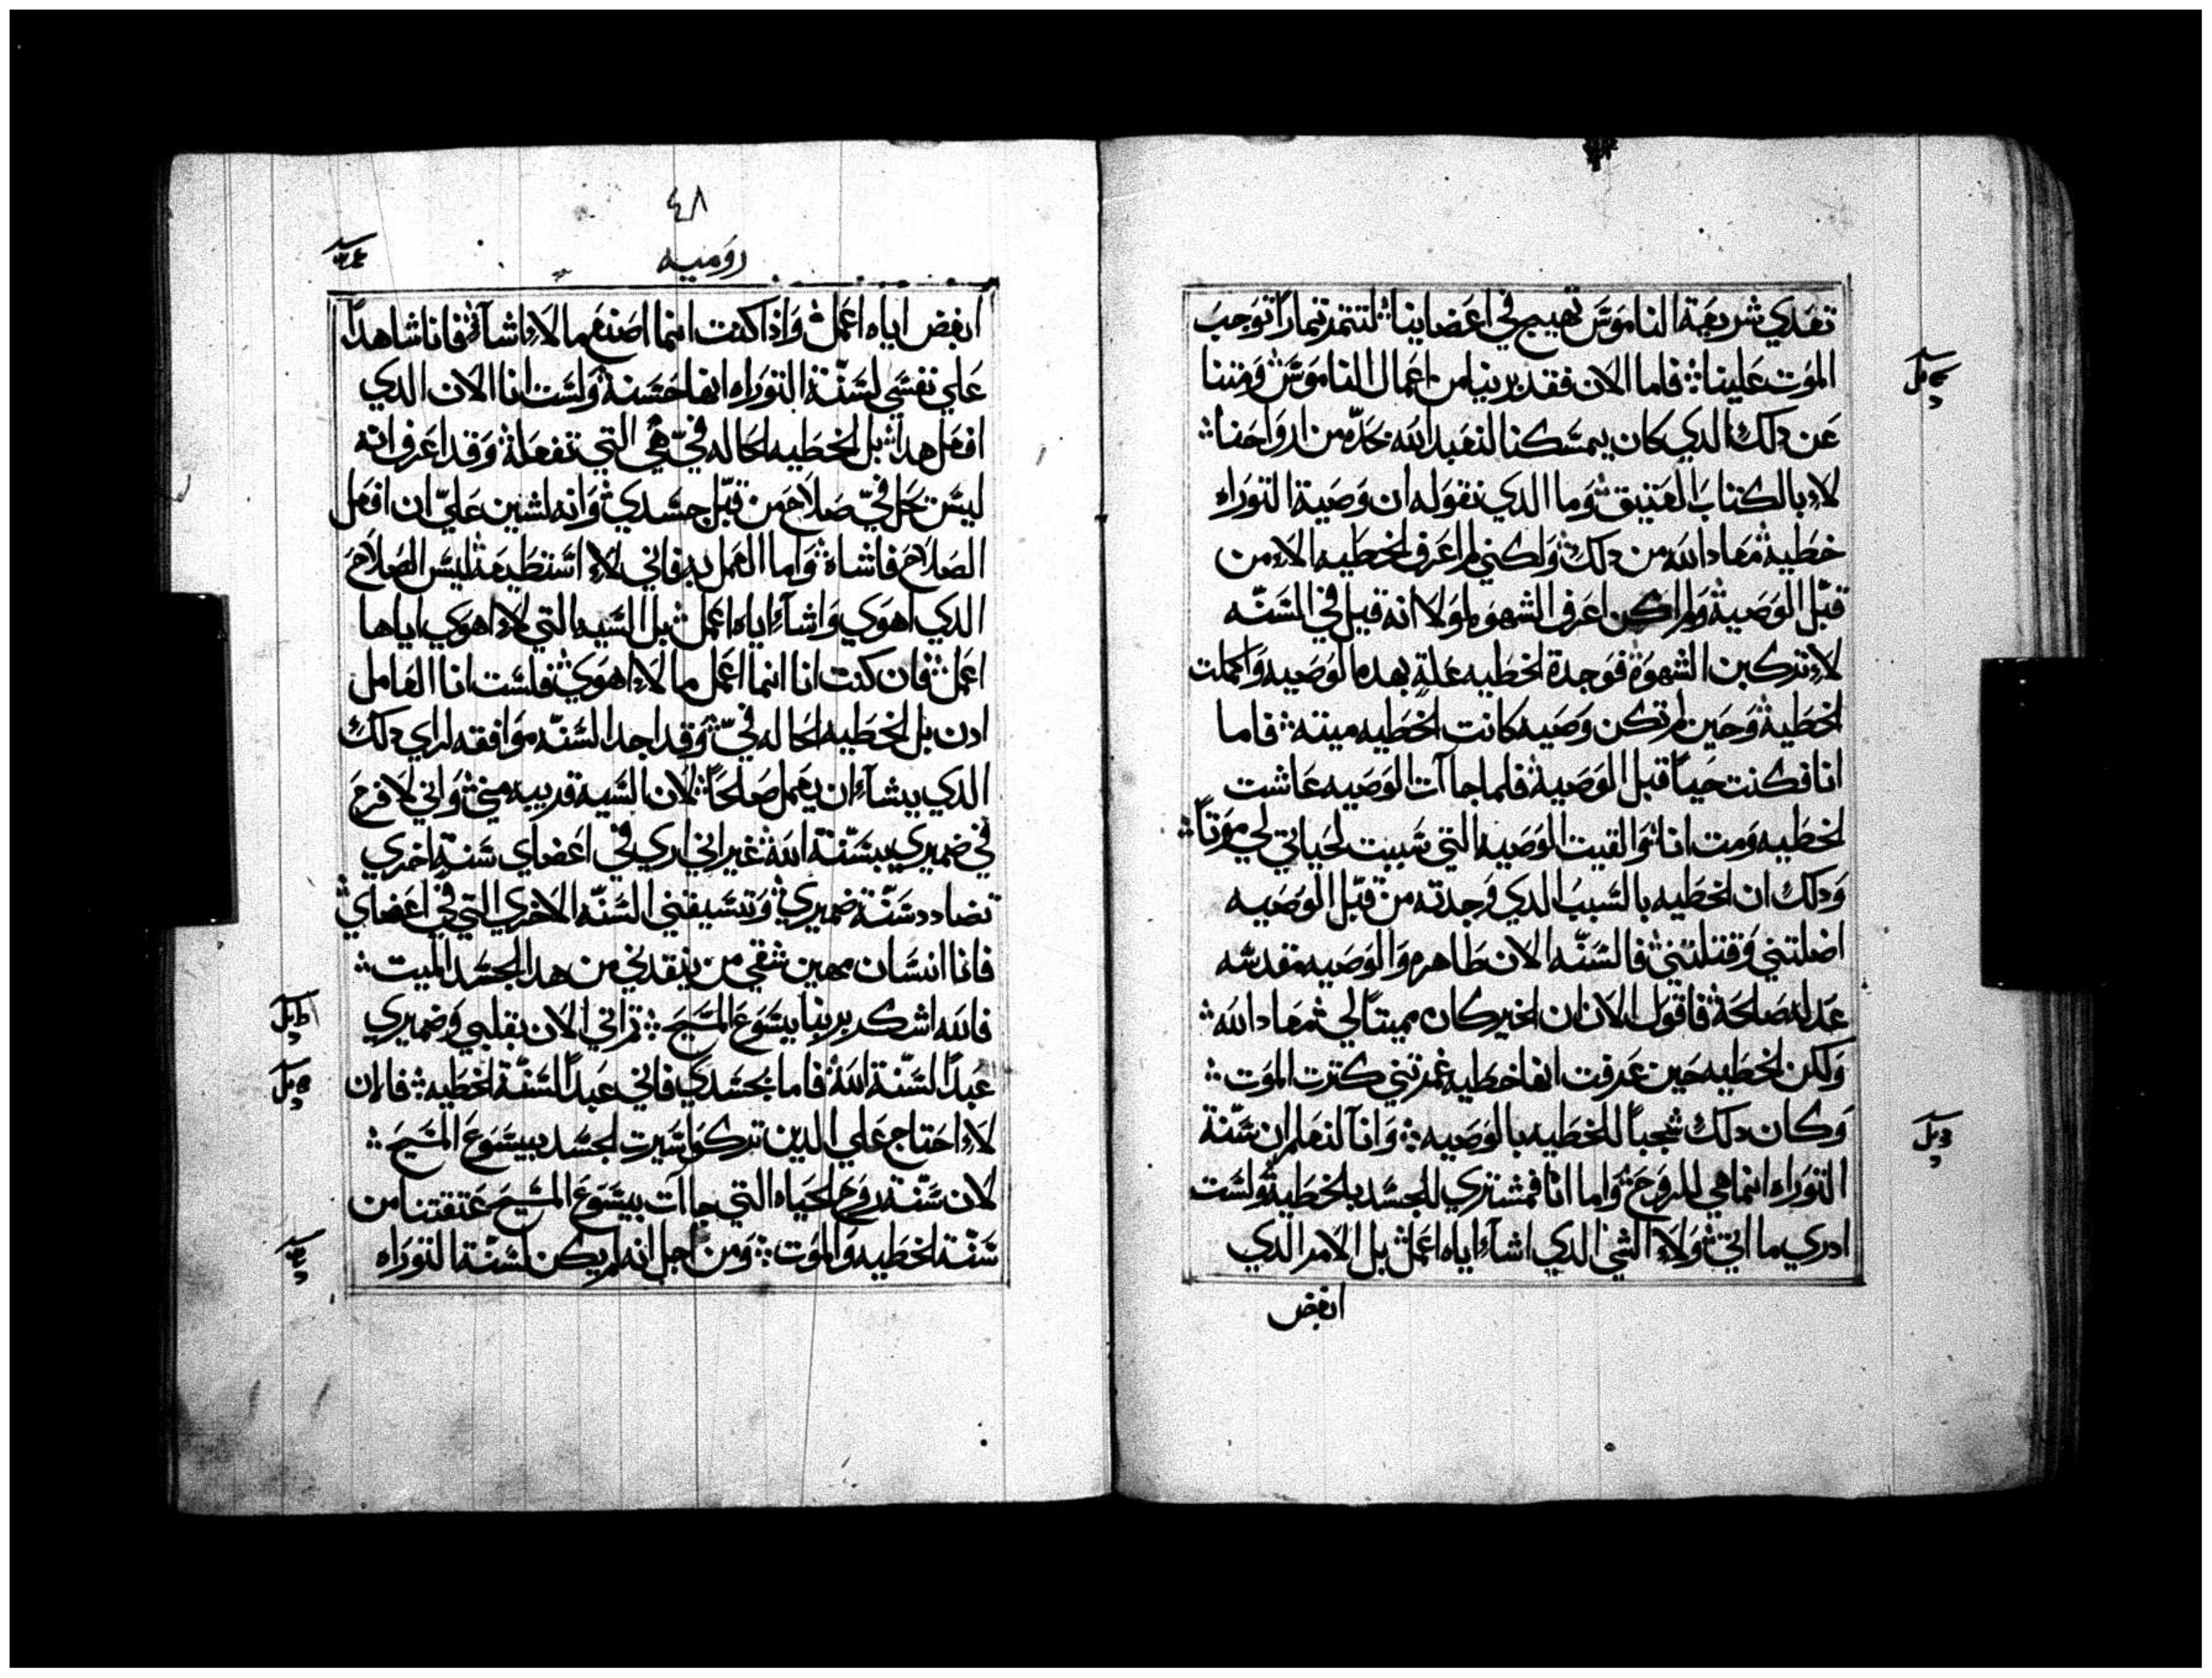 تعدي شريعة الناموس تهيج في اعضاينا لتتمر تمارا توجب
الموت علينا فاما الان فقد برينا من اعمال الناموس ومتنا
عن دلك الدي كان يمسكنا لنعبد الله بجده من ارواحنا
لا بالكتاب العتيق وما الدي نقوله ان وصية التوراه
خطيه معاد الله من دلك ولكني لم اعرف الخطيه الا من
قبل الوصية ولم اكن اعرف الشهوه لولا انه قيل في السنه
لا تركبن الشهوة فوجدة الخطيه علة بهده الوصيه واكملت
الخطية وحين لم تكن وصيه كانت الخطيه ميته فاما
انا فكنت حيا قبل الوصية فلما جاآت الوصيه عاشت
الخطيه ومت انا والقيت الوصيه التي سببت لحياتي لي موتا
ودلك ان الخطيه بالسبب الدي وجدته من قبل الوصيه
اضلتني وقتلتني فالسنه الان طاهره والوصيه مقدسه
عدله صالحة فاقول الان ان الخير كان مميتا لي معاد الله
ولكن الخطيه حين عرفت انها خطيه غمرتني كترت الموت
وكان دلك شجبا للخطيه بالوصيه وانا لنعلم ان سنة
التوراه انما هي للروح واما انا فمشتري للجسد بالخطية ولست
ادري ما اتي ولا الشي الدي اشاء اياه اعمل بل الامر الدي
ابغض
٤٨
روميه
ابغض اياه اعمل واذا كنت انما اصنع ما لا اشآ فانا شاهدا
علي نفسي لسنة التوراه انها حسنة ولست انا الان الدي
افعل هدا بل الخطيه الحاله في هي التي تفعله وقد اعرف انه
ليس تحل في صلاح من قبل جسدي وانه لشين علي ان افعل
الصلاح فاشاه واما العمل به فاني لا استطيعه ليس الصلاح
الدي اهوي واشآء اياه اعمل بل السيه التي لا اهوي اياها
اعمل فان كنت انا انما اعمل ما لا اهوي فلست انا العامل
ادن بل الخطيه الحاله في وقد اجد السنه موافقه لراي دلك
الدي يشآء ان يعمل صالحا لان السيه قريبه مني واني لافرح
في ضميري بسنة الله غير اني اري في اعضاي سنة اخري
تضادد سنة ضميري وتسيقني السنه الاخري التي في اعضاي
فانا انسان مهين شقي من ينقدني من هدا الجسد الميت
فالله اشكر بربنا يسوع المسيح تراني الان بقلبي وضميري
عبدا لسنة الله فاما بجسدي فاني عبدا لسنة الخطيه فالان
لا احتاج علي الدين تركوا سيرت الجسد بيسوع المسيح
لان سنة روح الحياه التي جاآت بيسوع المسيح عتقتنا من
سنة الخطيه والموت ومن اجل انه لم يكن لسنة التوراه